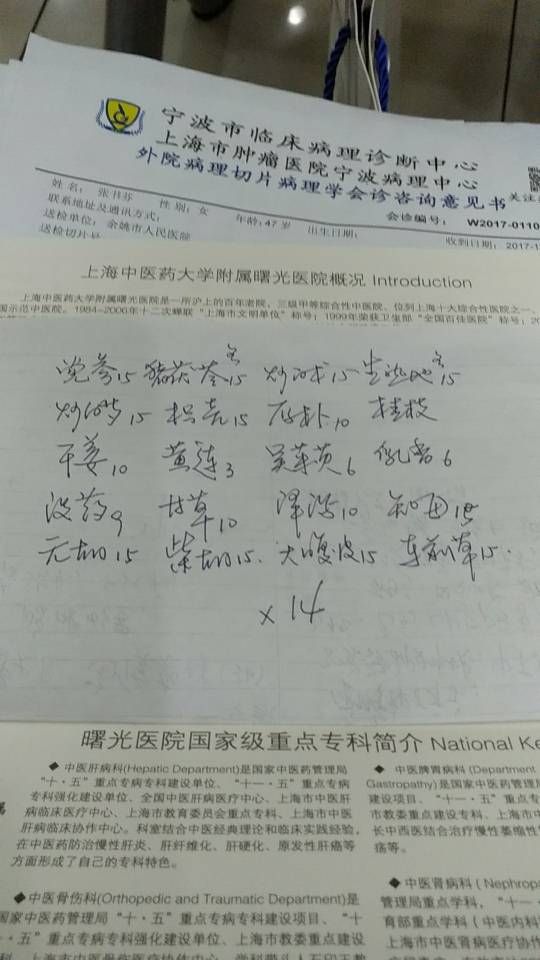 宁波市临床病理诊断中心
上海市肿瘤医院宁波病理中心
外院病理切片病理学会诊咨询意见书
关注
姓名: 张书芬 性别: 女 年龄: 47 岁 出生日期: 会诊编号: W2017-0110
联系地址及通讯方式:
送检单位: 余姚市人民医院 收到日期: 2017-1
送检切片号
上海中医药大学附属曙光医院概况 Introduction
上海中医药大学附属曙光医院是一所沪上的百年老院, 三级甲等综合性中医院, 位列上海十大综合性医院之一、
国示范中医院。1984-2006年十二次蝉联“上海市文明单位”称号; 1999年荣获卫生部“全国百佳医院”称号; 20
党参15 猪茯苓各15 炒白术15 生熟地各15
炒白芍15 枳壳15 厚朴10 桂枝
干姜10 黄连3 吴茱萸6 乳香6
没药9 甘草10 泽泻10 知母
元胡15 柴胡15. 大腹皮15 车前草15.
×14
曙光医院国家级重点专科简介 National Ke
◆ 中医肝病科(Hepatic Department)是国家中医药管理局
“十·五”重点专病专科建设单位、“十一·五”重点专病
专科强化建设单位、全国中医肝病医疗中心、上海市中医肝
病临床医疗中心、上海市教育委员会重点专科、上海市中医
肝病临床协作中心。科室结合中医经典理论和临床实践经验,
在中医药防治慢性肝炎、肝纤维化、肝硬化、原发性肝癌等
方面形成了自己的专科特色。
◆ 中医脾胃病科 (Department
Gastropathy)是国家中医药管理
建设项目、“十一·五”重点专
市教委重点建设专科、上海市中
长中西医结合治疗慢性萎缩性
疡等。
◆中医骨伤科(Orthopedic and Traumatic Department)是
国家中医药管理局“十·五”重点专病专科建设项目、“十
·五”重点专病专科强化建设单位、上海市教委重点建设
◆ 中医肾病科 ( Nephrop
管理局重点学科, “十一·
育部重点学科 ( 中医内科
上海市中医肾病医疗协作